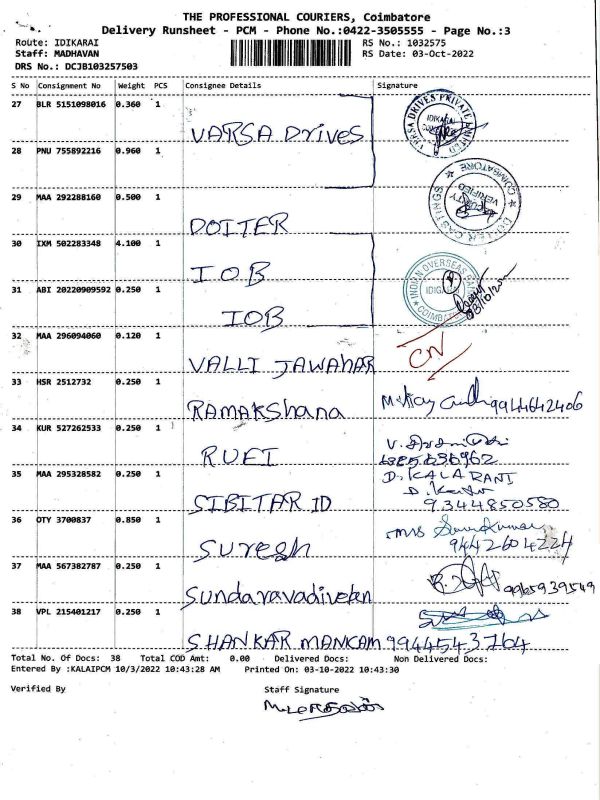 THE PROFESSIONAL COURIERS, Coimbatore
Delivery Runsheet - PCM - Phone No.:0422-3505555 - Page No.:3
Route: IDIKARAI RS No.: 1032575
Staff: MADHAVAN RS Date: 03-Oct-2022
DRS No.: DCJB103257503
S No Consignment No Weight PCS Consignee Details Signature
27 BLR 5151098016 0.360 1
VARSA Drives
28 PNU 755892216 0.960 1
29 MAA 292288160 0.500 1
DOITER
30 IXM 502283348 4.100 1
IOB
31 ABI 20220909592 0.250 1
IOB
32 MAA 296094060 0.120 1
VALLI JAWAHAR CN
33 HSR 2512732 0.250 1
RAMAKShana 9944642406
34 KUR 527262533 0.250 1
RUEI
35 MAA 295328582 0.250 1 D. KALARANI
SIBITAR ID 9344850580
36 OTY 3700837 0.850 1
Suresh 9442604224
37 MAA 567382787 0.250 1
Sundaravadivelan 9965939549
38 VPL 215401217 0.250 1
SHANKAR MANKAM 9944543764
Total No. Of Docs: 38 Total COD Amt: 0.00 Delivered Docs: Non Delivered Docs:
Entered By :KALAIPCM 10/3/2022 10:43:28 AM Printed On: 03-10-2022 10:43:30
Verified By Staff Signature